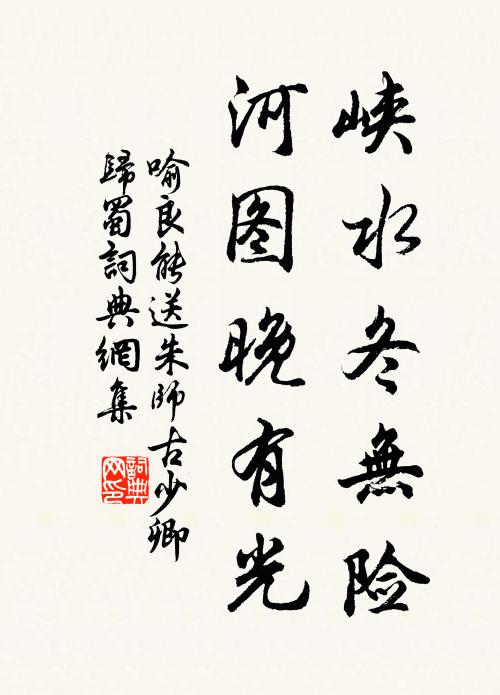 峡水冬無险
河图晚有光
喻良能送朱師古少卿
歸蜀詞典網集
詞典
网印